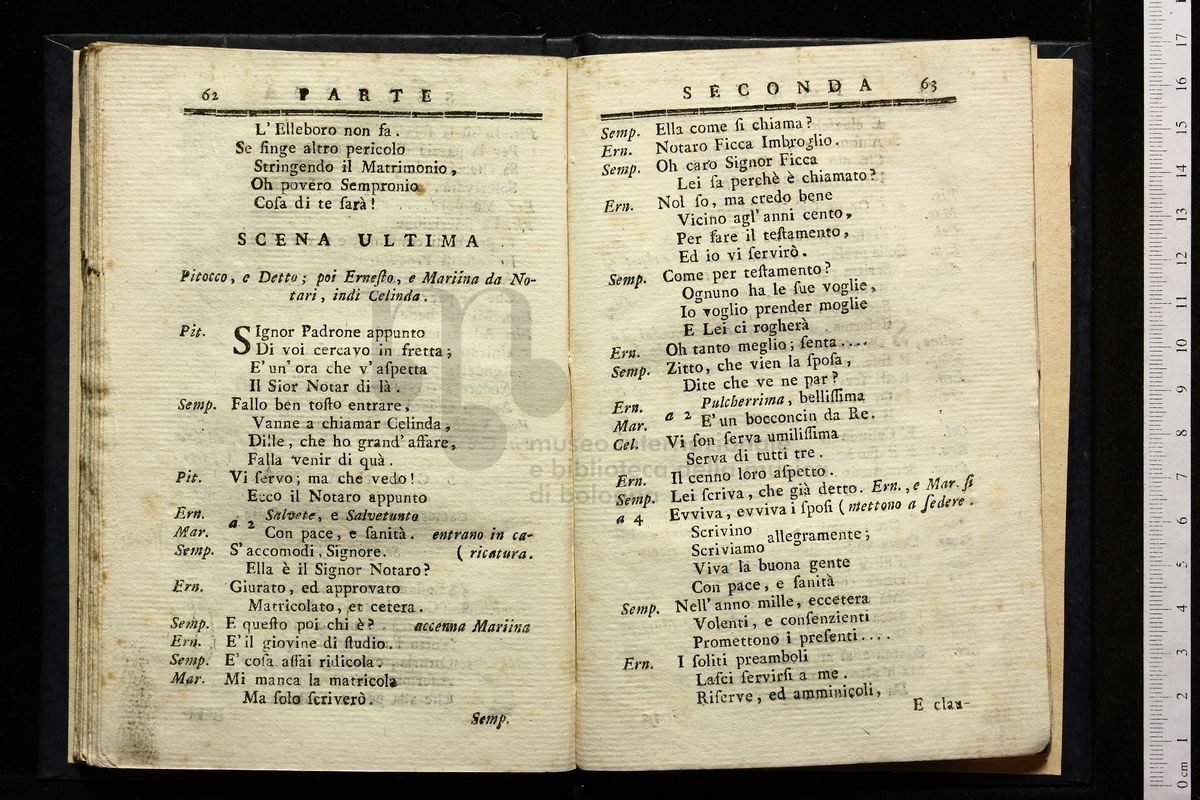 62 PARTE
L' Elleboro non ſa.
Se finge altro pericolo
Stringendo il Matrimonio,
Oh povero Sempronio
Coſa di te ſarà!
SCENA ULTIMA
Pitocco, e Detto; poi Erneſto, e Mariina da No-
tari, indi Celinda.
Pit. SIgnor Padrone appunto
Di voi cercavo in fretta;
E' un' ora che v' aſpetta
Il Sior Notar di là.
Semp. Fallo ben toſto entrare,
Vanne a chiamar Celinda,
Dille, che ho grand' affare,
Falla venir di quà.
Pit. Vi ſervo; ma che vedo!
Ecco il Notaro appunto
Ern. Salvete, e Salvetunto
Mar. a 2 Con pace, e ſanità. entrano in ca-
Semp. S' accomodi, Signore. ( ricatura.
Ella è il Signor Notaro?
Ern. Giurato, ed approvato
Matricolato, et cetera.
Semp. E queſto poi chi è? accenna Mariina
Ern. E' il giovine di ſtudio.
Semp. E' coſa aſſai ridicola.
Mar. Mi manca la matricola
Ma ſolo ſcriverò.
Semp.
SECONDA 63
Semp. Ella come ſi chiama?
Ern. Notaro Ficca Imbroglio.
Semp. Oh caro Signor Ficca
Lei ſa perchè è chiamato?
Ern. Nol ſo, ma credo bene
Vicino agl' anni cento,
Per fare il teſtamento,
Ed io vi ſervirò.
Semp. Come per teſtamento?
Ognuno ha le ſue voglie,
Io voglio prender moglie
E Lei ci rogherà
Ern. Oh tanto meglio; ſenta....
Semp. Zitto, che vien la ſpoſa,
Dite che ve ne par?
Ern. Pulcherrima, belliſſima
Mar. a 2 E' un bocconcin da Re.
Cel. Vi ſon ſerva umiliſſima
Serva di tutti tre.
Ern. Il cenno loro aſpetto.
Semp. Lei ſcriva, che già detto. Ern., e Mar. ſi
a 4 Evviva, evviva i ſpoſi ( mettono a ſedere.
Scrivino allegramente;
Scriviamo
Viva la buona gente
Con pace, e ſanità
Semp. Nell' anno mille, eccetera
Volenti, e conſenzienti
Promettono i preſenti....
Ern. I ſoliti preamboli
Laſci ſervirſi a me.
Riſerve, ed amminicoli,
E clau-
17
16
15
14
13
12
11
10
9
8
7
6
5
4
3
2
1
0 cm